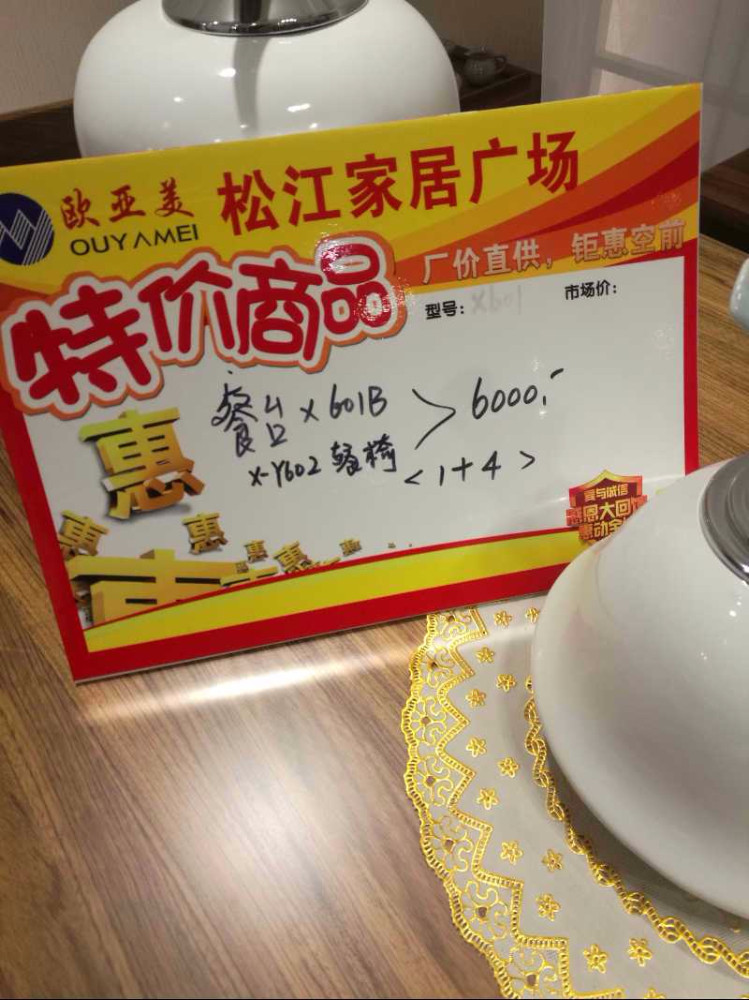 欧亚美
OUYAMEI
松江家居广场
厂价直供，钜惠空前
特价商品
型号：x601
市场价：
餐台 x 601B
6000.-
x-Y602 餐椅
<1+4>
惠
惠
惠
惠
惠
惠
宾与诚信
感恩大回
惠动全